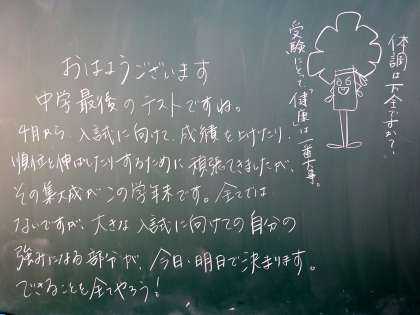 おはようございます
中学最後のテストですね。
4月から、入試に向けて、成績を上げたり、
順位を伸ばしたりするために頑張ってきましたが、
その集大成がこの学年末です。全てでは
ないですが、大きな入試に向けての自分の
強みになる部分が、今日・明日で決まります。
できることを全てやろう！
体調は万全ですか？
受験にとって、健康は一番大事。